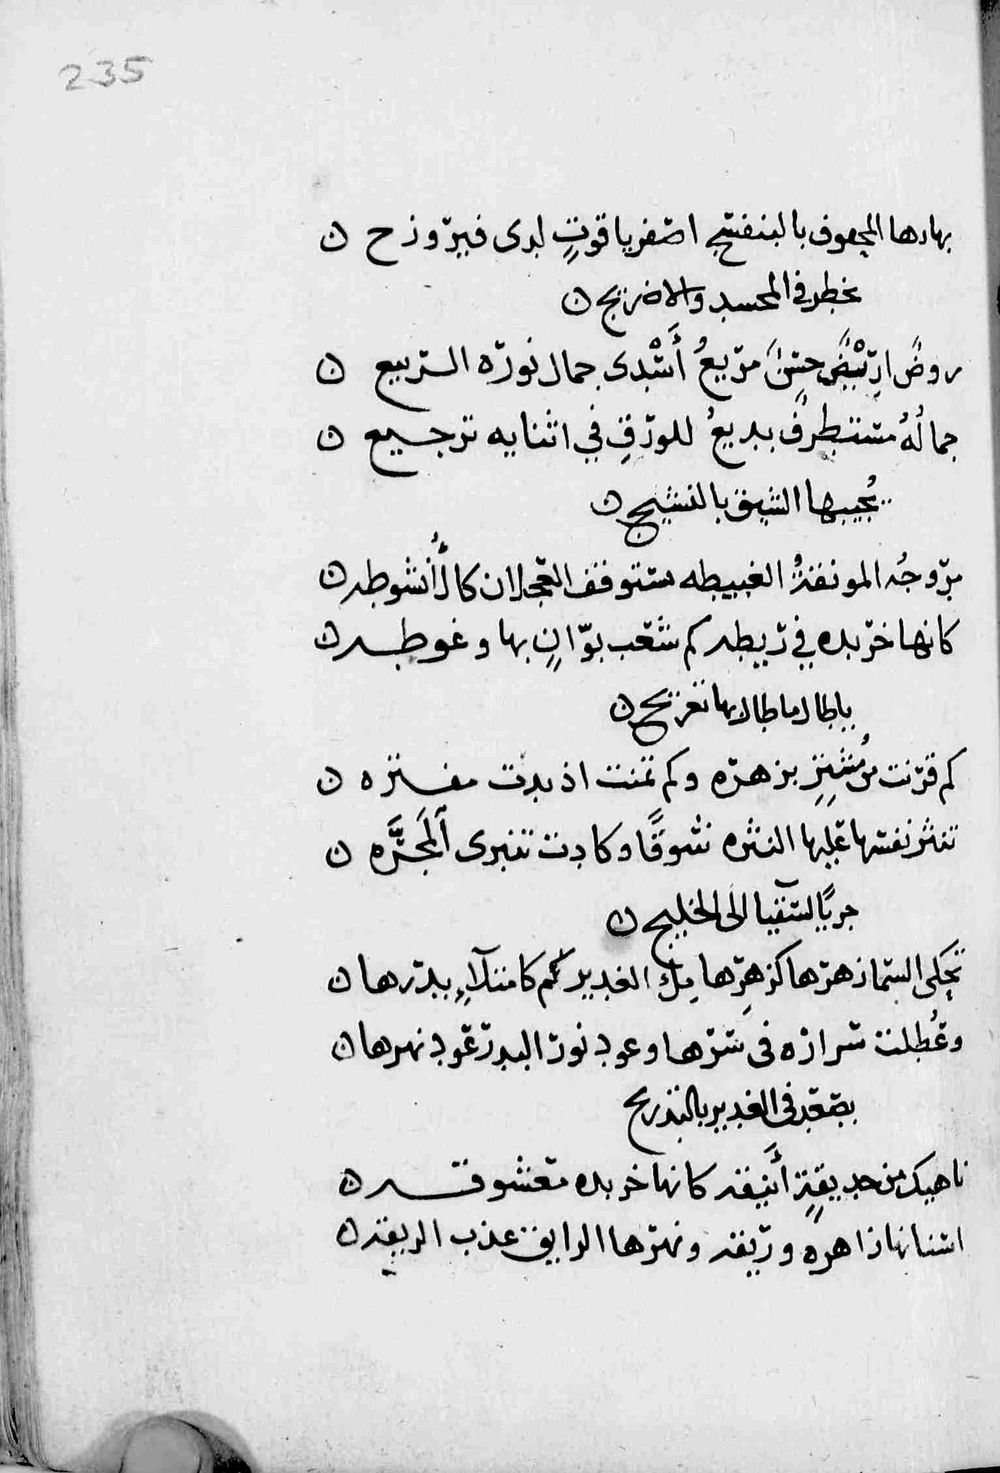 235
بهارها المحفوف بالبنفسج اصفر ياقوتٍ لدى فيروزح ن
يخطر في المجسد والاضريج ن
روضٌ اريضٌ حسنٌ مريعُ أَسْدى جمال نوره الربيع ن
جمالُهُ مستطرفٌ بديعُ للورقِ في اثنايه ترجيع ن
يُجيبها الشيق بالنشيج ن
مروجُه المونقةُ الغبيطه ستوقف العجلان كالأُنشوطه ن
كانها خريده في ريطه كم شعب بوّانٍ بها وغوطه ن
ياطال ما طال بها تعريج ن
كم قرنت من مُشترٍ بزهره وكم تمنت اذ بدت مفتره ن
تنثر نفسها عليها النثره شوقًا وكادت تنبرى ألمَجَرَّه ن
جريًا لسقيا الى الخليج ن
تحكى السما زهرها كزهرِها مِلْ الغدير كم كا متلآلٍ بدرها ن
وعُطلت سرازه فى سرها وعود نور البدر عود نهرها ن
يصعد فى الغدير بالتدريح
ناهيك من حديقةٍ أَنيقه كانها خريده معشوقه ن
اسنانها زاهرة وريقه ونهرها الرايق عذب الريقه ن